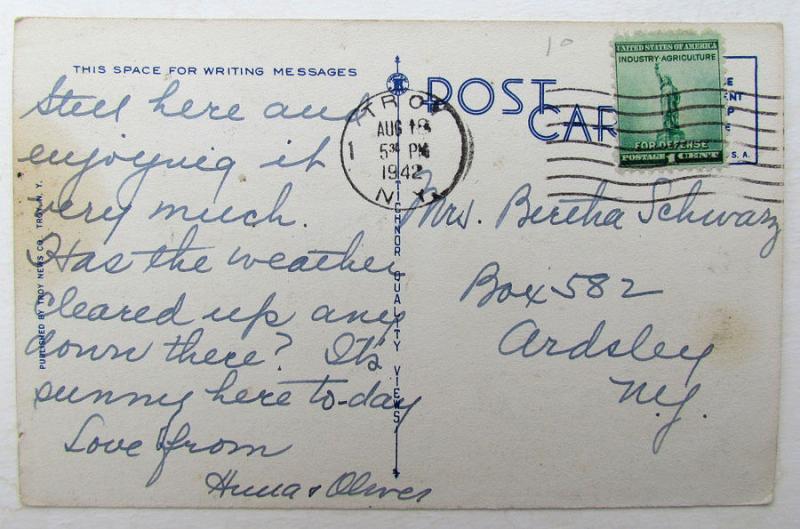 THIS SPACE FOR WRITING MESSAGES
Still here and
enjoying it
very much.
Has the weather
cleared up any
down there? It's
sunny here to-day
Love from
Anna & Oliver
PUBLISHED BY TROY NEWS CO. TROY, N. Y.
TICHNOR QUALITY VIEWS
POST
CAR
TROY
AUG 18
5 30 PM
1942
N.Y.
1
10
UNITED STATES OF AMERICA
INDUSTRY·AGRICULTURE
FOR DEFENSE
POSTAGE 1 CENT
E
ENT
P
E
S. A.
Mrs. Bertha Schwarz
Box 582
Ardsley
N.Y.